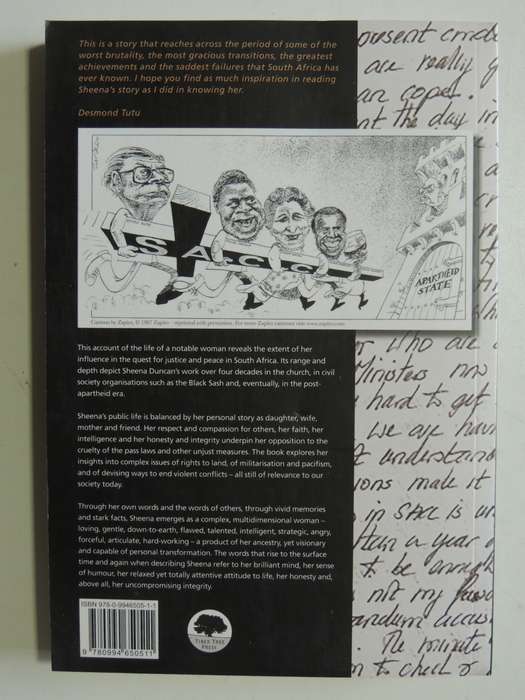 This is a story that reaches across the period of some of the
worst brutality, the most gracious transitions, the greatest
achievements and the saddest failures that South Africa has
ever known. I hope you find as much inspiration in reading
Sheena's story as I did in knowing her.
Desmond Tutu
SACC
APARTHEID
STATE
Cartoon by Zapiro, © 1987 Zapiro
This account of the life of a notable woman reveals the extent of her
influence in the quest for justice and peace in South Africa. Its range and
depth depict Sheena Duncan's work over four decades in the church, in civil
society organisations such as the Black Sash and, eventually, in the post-
apartheid era.
Sheena's public life is balanced by her personal story as daughter, wife,
mother and friend. Her respect and compassion for others, her faith, her
intelligence and her honesty and integrity underpin her opposition to the
cruelty of the pass laws and other unjust measures. The book explores her
insights into complex issues of rights to land, of militarisation and pacifism,
and of devising ways to end violent conflicts – all still of relevance to our
society today.
Through her own words and the words of others, through vivid memories
and stark facts, Sheena emerges as a complex, multidimensional woman –
loving, gentle, down-to-earth, flawed, talented, intelligent, strategic, angry,
forceful, articulate, hard-working – a product of her ancestry, yet visionary
and capable of personal transformation. The words that rise to the surface
time and again when describing Sheena refer to her brilliant mind, her sense
of humour, her relaxed yet totally attentive attitude to life, her honesty and,
above all, her uncompromising integrity.
ISBN 978-0-9946505-1-1
9 780994 650511
TIBER TREE
PRESS
present
are really
the day in
Who are
Ministers
hard to get
We are
understand
make it
in SACC is
than a year
be
not my
The minute
to check